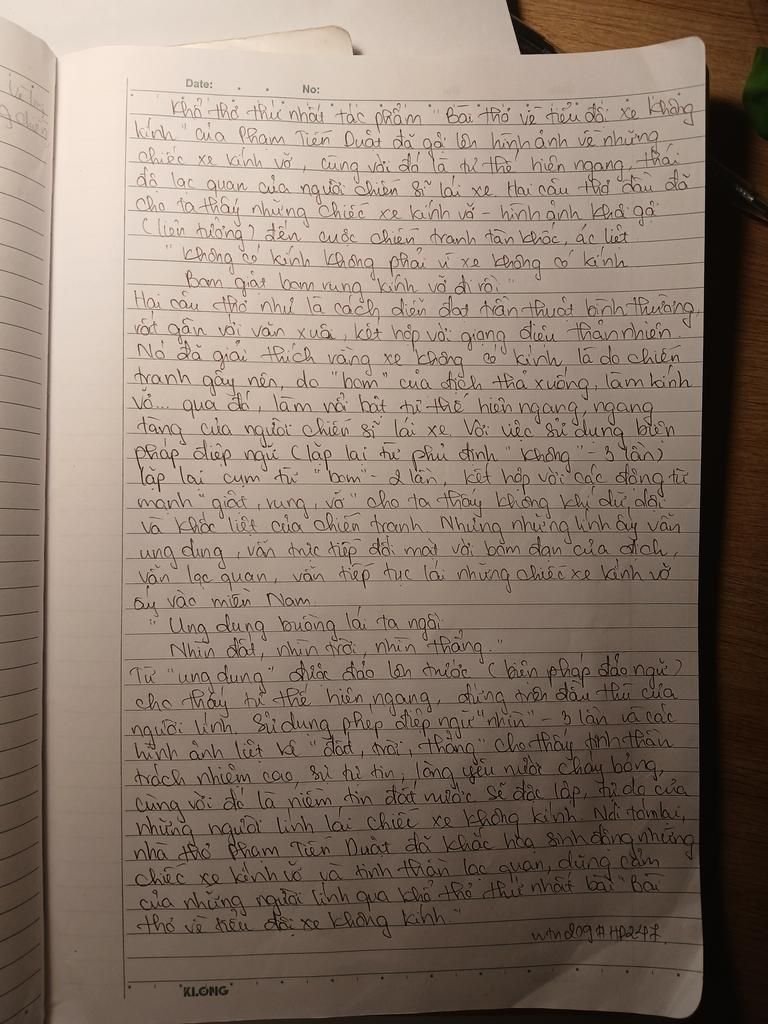 Date: . . No:
Khổ thơ thứ nhất tác phẩm "Bài thơ về tiểu đội xe không
kính" của Phạm Tiến Duật đã gợi lên hình ảnh về những
chiếc xe kính vỡ, cùng với đó là tư thế hiên ngang, thái
độ lạc quan của người chiến sĩ lái xe. Hai câu thơ đầu đã
cho ta thấy những chiếc xe kính vỡ - hình ảnh khơi gợi
(liên tưởng) đến cuộc chiến tranh tàn khốc, ác liệt
"Không có kính không phải vì xe không có kính
Bom giật bom rung kính vỡ đi rồi"
Hai câu thơ như là cách diễn đạt trần thuật bình thường,
rất gần với văn xuôi, kết hợp với giọng điệu thản nhiên.
Nó đã giải thích vàng xe không có kính là do chiến
tranh gây nên, do "bom" của địch thả xuống, làm kính
vỡ... qua đó, làm nổi bật tư thế hiên ngang, ngang
tàng của người chiến sĩ lái xe. Với việc sử dụng biện
pháp điệp ngữ (lặp lại từ phủ định "không" - 3 lần)
lặp lại cụm từ "bom" - 2 lần, kết hợp với các động từ
mạnh "giật, rung, vỡ" cho ta thấy không khí dữ dội
và khốc liệt của chiến tranh. Nhưng những lính ấy vẫn
ung dung, vẫn trực tiếp đối mặt với bom đạn của địch,
vẫn lạc quan, vẫn tiếp tục lái những chiếc xe kính vỡ
ấy vào miền Nam.
"Ung dung buồng lái ta ngồi
Nhìn đất, nhìn trời, nhìn thẳng."
Từ "ung dung" được đảo lên trước (biện pháp đảo ngữ)
cho thấy tư thế hiên ngang, đứng trên đầu thù của
người lính. Sử dụng phép điệp ngữ "nhìn" - 3 lần và các
hình ảnh liệt kê "đất, trời, thẳng" cho thấy tinh thần
trách nhiệm cao, sự tự tin, lòng yêu nước cháy bỏng,
cùng với đó là niềm tin đất nước sẽ độc lập, tự do của
những người lính lái chiếc xe không kính. Nói tóm lại,
nhà thơ Phạm Tiến Duật đã khắc họa sinh động những
chiếc xe kính vỡ và tinh thần lạc quan, dũng cảm
của những người lính qua khổ thơ thứ nhất bài "Bài
thơ về tiểu đội xe không kính."
KLONG